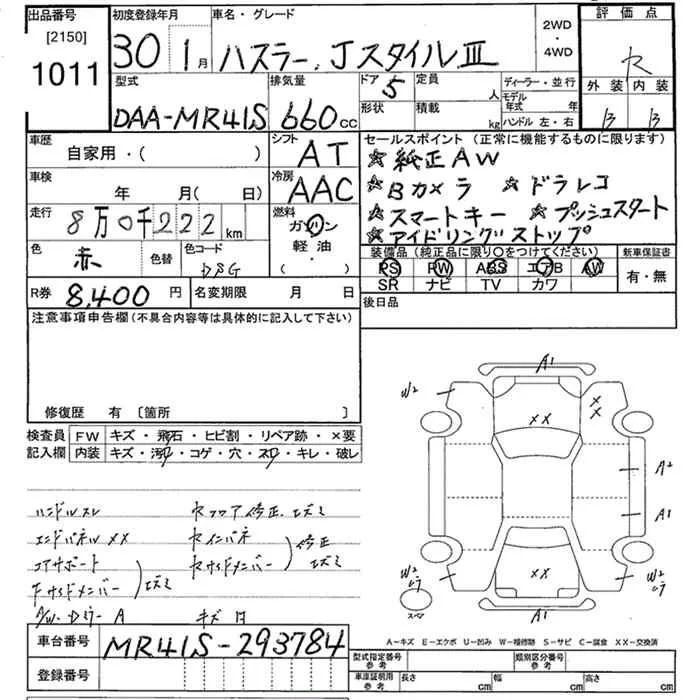 出品番号
[2150]
1011
初度登録年月
30 1月
車名・グレード
ハスラー、JスタイルⅢ
2WD
・
4WD
評価点
外装 内装
B B
型式
DAA-MR41S
排気量
660cc
ドア
5
定員
人
形状
積載
kg
ディーラー・並行
モデル年式 年
ハンドル 左・右
車歴
自家用・( )
シフト
AT
車検
年 月( 日)
冷房
AAC
走行
8万0千222km
燃料
ガソリン
軽油・
( )
色
赤
色替
色コード
R券
8,400円
名変期限 月 日
セールスポイント(正常に機能するものに限ります)
☆純正AW
☆Bカメラ ☆ドラレコ
☆スマートキー ☆プッシュスタート
☆アイドリングストップ
装備品(純正品に限り〇をつけてください)
PS PW ABS エアB AW
SR ナビ TV カワ
新車保証書
有・無
後日品
注意事項申告欄(不具合内容等は具体的に記入して下さい)
修復歴 有 〔箇所 〕
検査員
記入欄
FW キズ・飛石・ヒビ割・リペア跡・×要
内装 キズ・汚れ・コゲ・穴・スレ・キレ・破レ
ハンドルスレ
エンドパネル XX
コアサポート
FサイドメンバーE
キズ
修正
A1
W2
XX
XX
A2
A1
W2
XX
W2
A1
A-キズ E-エクボ U-凹み W-補修跡 S-サビ C-腐食 XX-交換済
車台番号
MR41S-293784
登録番号
型式指定番号
参考
類別区分番号
参考
車庫証明用
参考
長さ cm
幅 cm
高さ cm